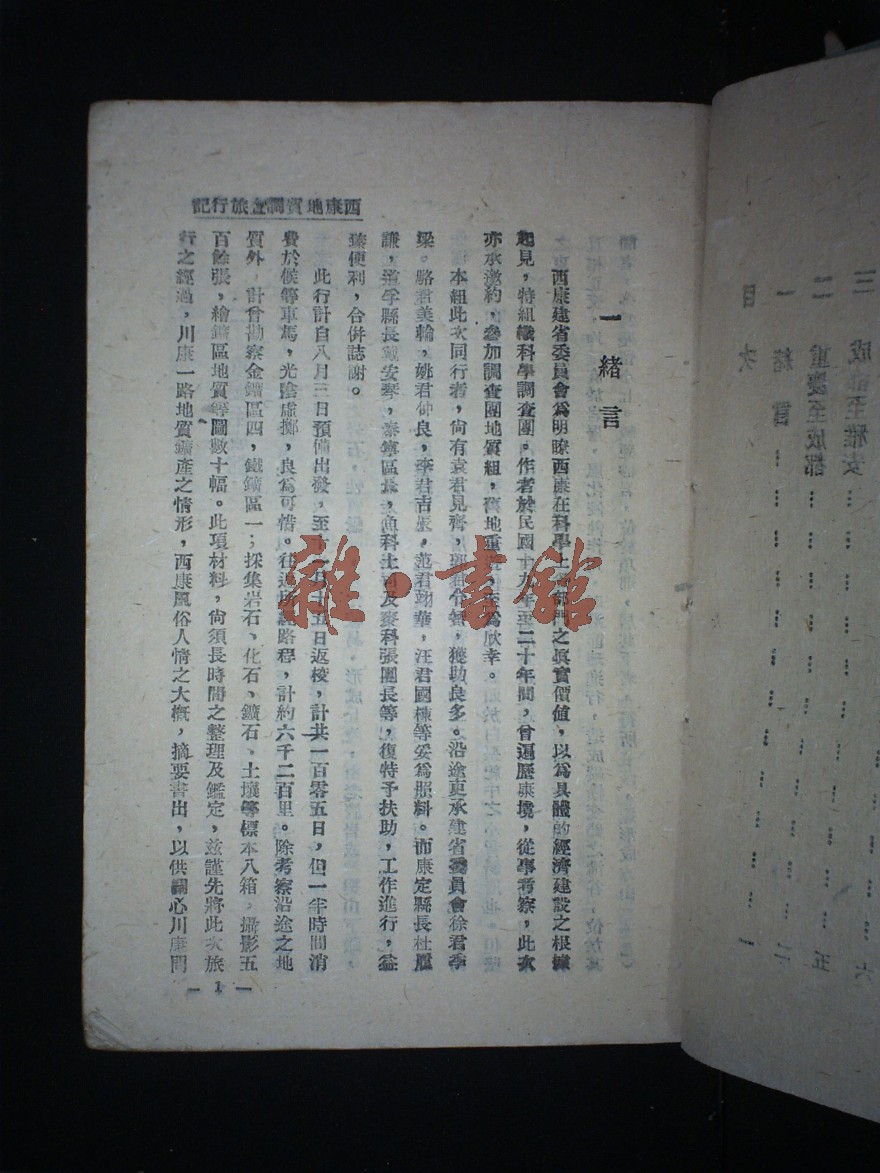 目次
一 緒言 二
二 重慶至成都 五
三 成都至雅安 六
西康地質調查旅行記
一 緒言
西康建省委員會爲明瞭西康在科學上各部門之眞實價値，以爲具體的經濟建設之根據
起見，特組織科學調查團。作者於民國十九年至二十年間，曾遍歷康境，從學考察，此次
亦承邀約，參加調查團地質組，舊地重遊，至爲欣幸。
本組此次同行者，尙有袁君見齊，郭君俗智，獲助良多。沿途更承建省委員會徐君季
梁。駱君美輪，姚君仲良，李君吉辰，范君翊華，汪君國棟等妥爲照料。而康定縣長杜履
謙，道孚縣長戴安琴，泰寧區長，魚科土司及麥科張團長等，復特予扶助，工作進行，益
臻便利，合併誌謝。
此行計自八月三日預備出發，至十一月十五日返棱，計共一百零五日，但一半時間消
費於候等車馬，光陰虛擲，良爲可惜。往返所經路程，計約六千二百里。除考察沿途之地
質外，計曾勘察金鑛區四，鐵鑛區一；採集岩石、化石、鑛石、土壤等標本八箱，攝影五
百餘張，繪鑛區地質等圖數十幅。此項材料，尙須長時間之整理及鑑定，茲謹先將此次旅
行之經過，川康一路地質鑛產之情形，西康風俗人情之大槪，摘要書出，以供關心川康問
— 1 —
雜·書館